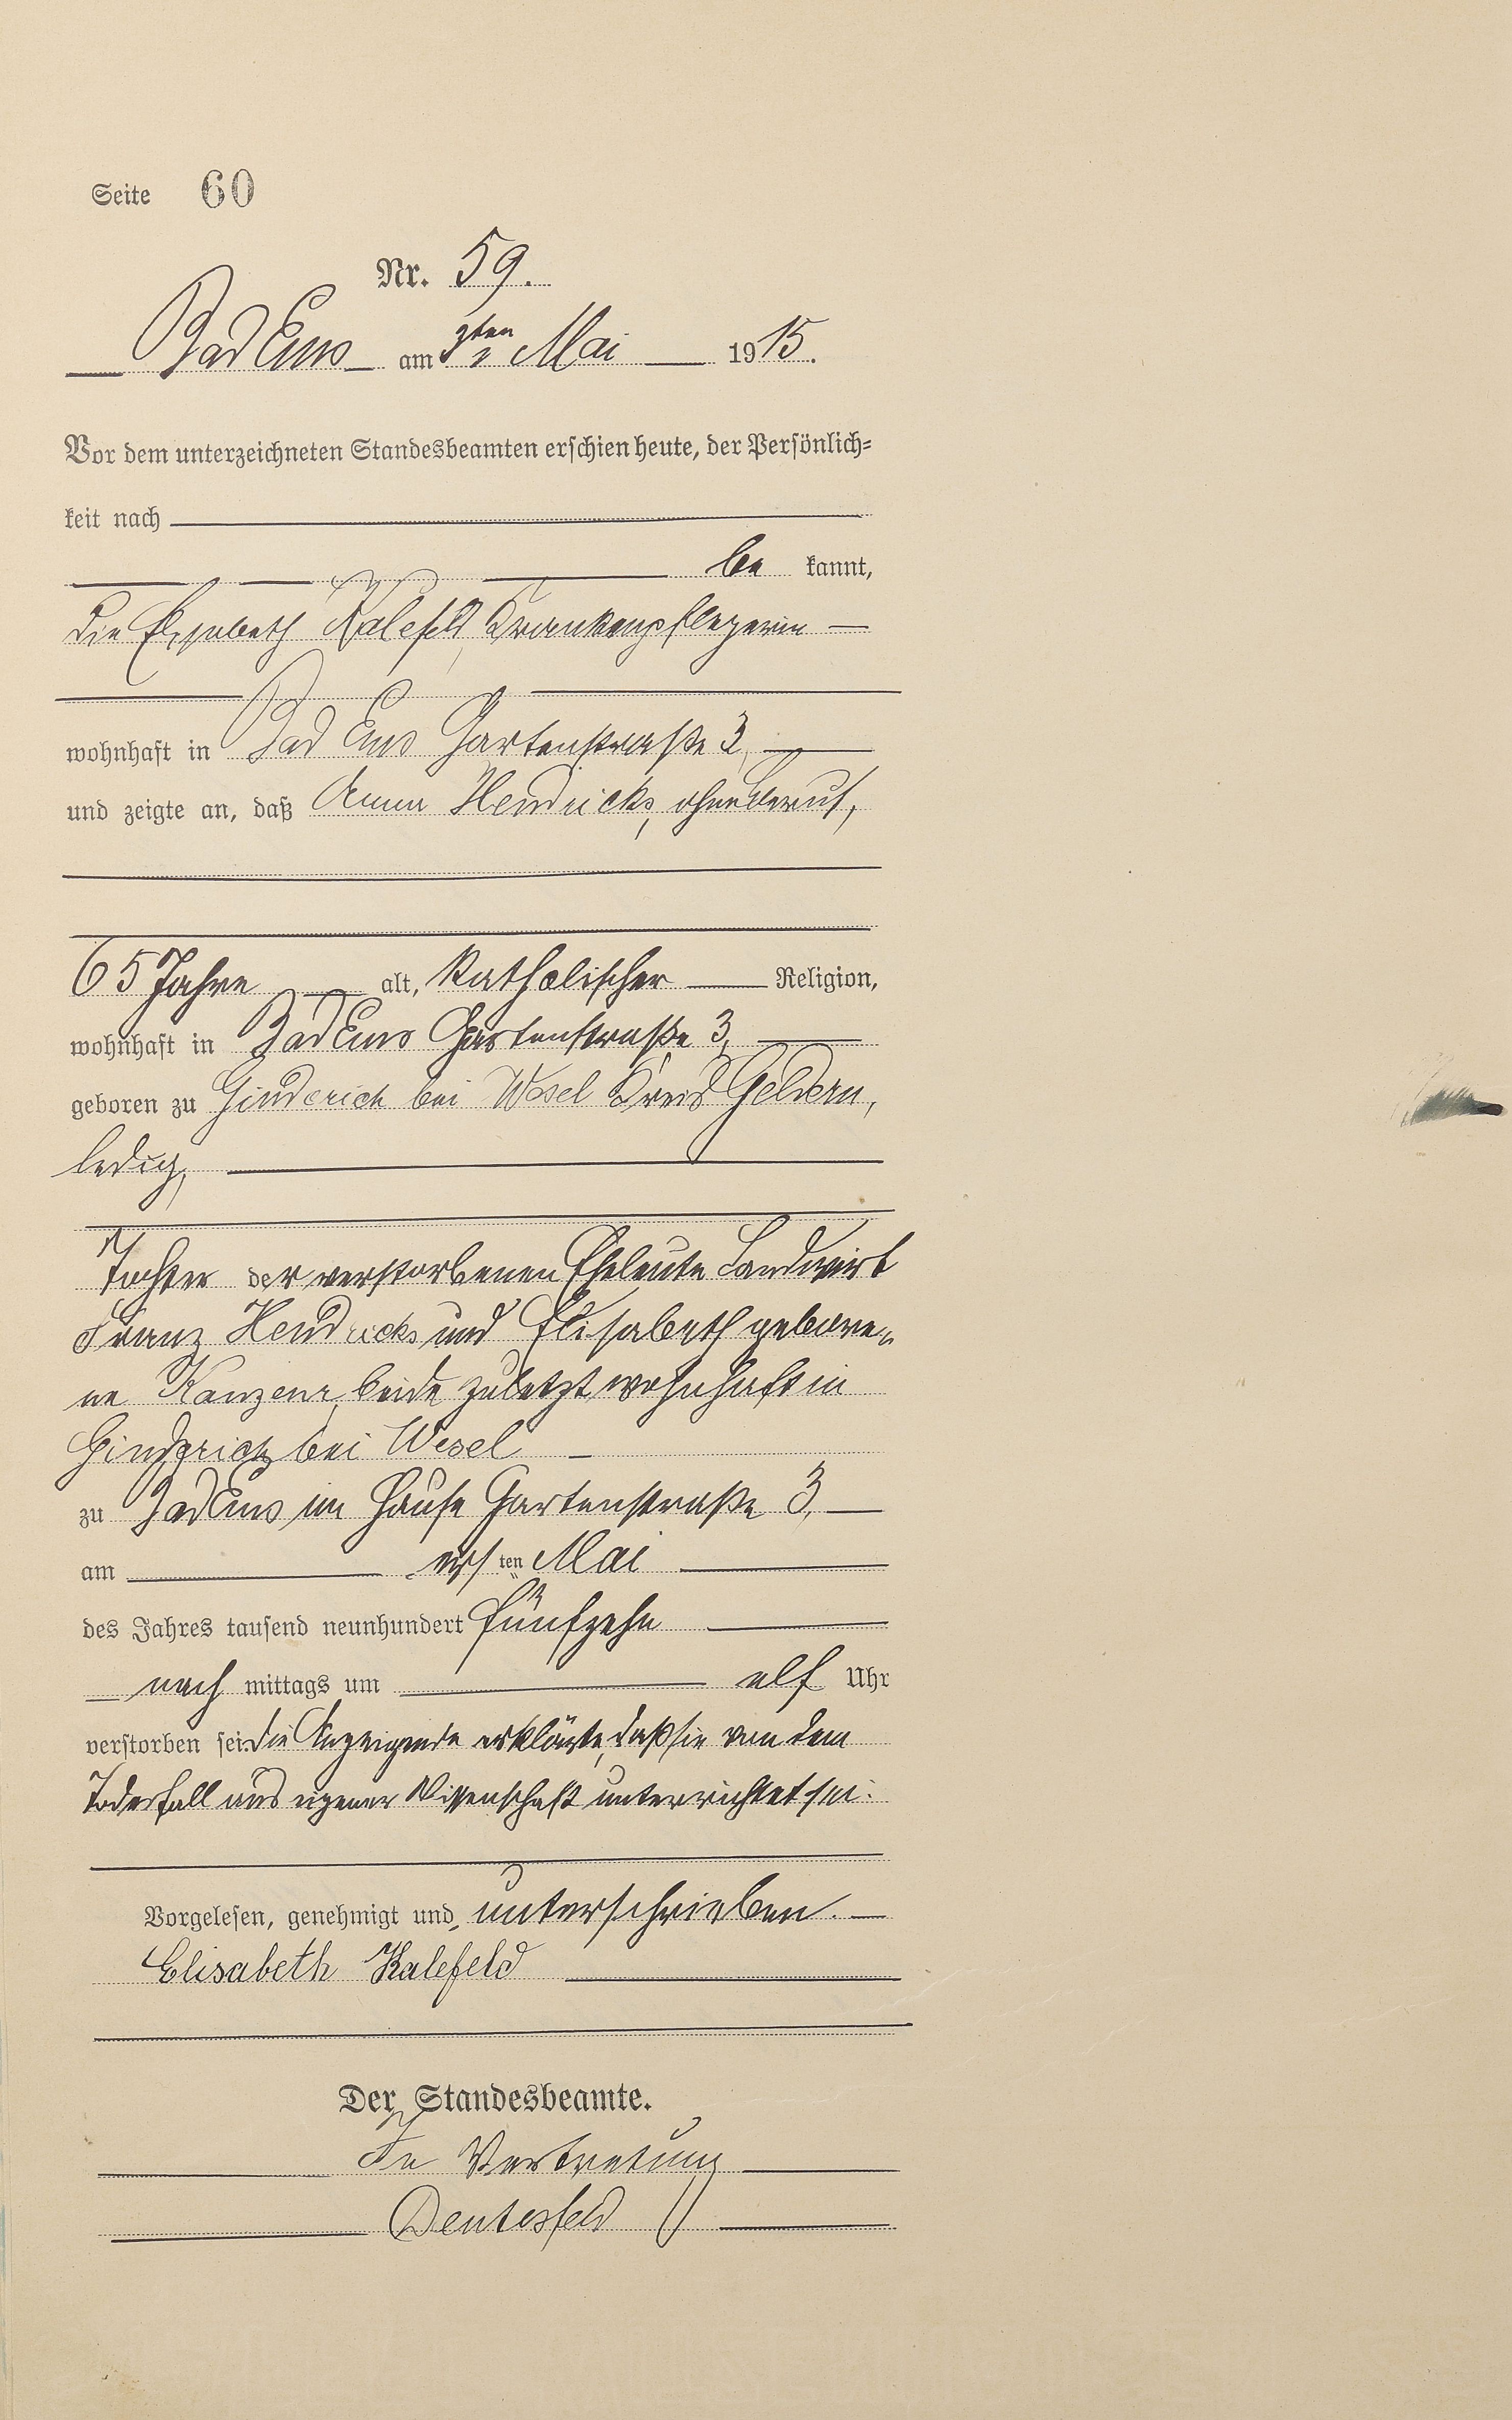 Seite 60
Nr. 59.
Bad Ems am 3ten Mai 1915.
Vor dem unterzeichneten Standesbeamten erschien heute, der Persönlich-
keit nach
be kannt,
die Elisabeth Kalefeld, Krankenpflegerin
wohnhaft in Bad Ems Gartenstraße 3,
und zeigte an, daß Anna Hendricks, ohne Beruf,
65 Jahre alt, katholischer Religion,
wohnhaft in Bad Ems Gartenstraße 3,
geboren zu Ginderich bei Wesel Kreis Geldern,
ledig,
Tochter der verstorbenen Eheleute Landwirt
Franz Hendricks und Elisabeth gebore-
ne beide zuletzt wohnhaft in
Ginderich bei Wesel
zu Bad Ems im Hause Gartenstraße 3,
am ersten Mai
des Jahres tausend neunhundert fünfzehn
nach mittags um elf Uhr
verstorben sei. Die Anzeigende erklärte, daß sie von dem
Todesfall aus eigener Wissenschaft unterrichtet sei.
Vorgelesen, genehmigt und unterschrieben.
Elisabeth Kalefeld
Der Standesbeamte.
In Vertretung